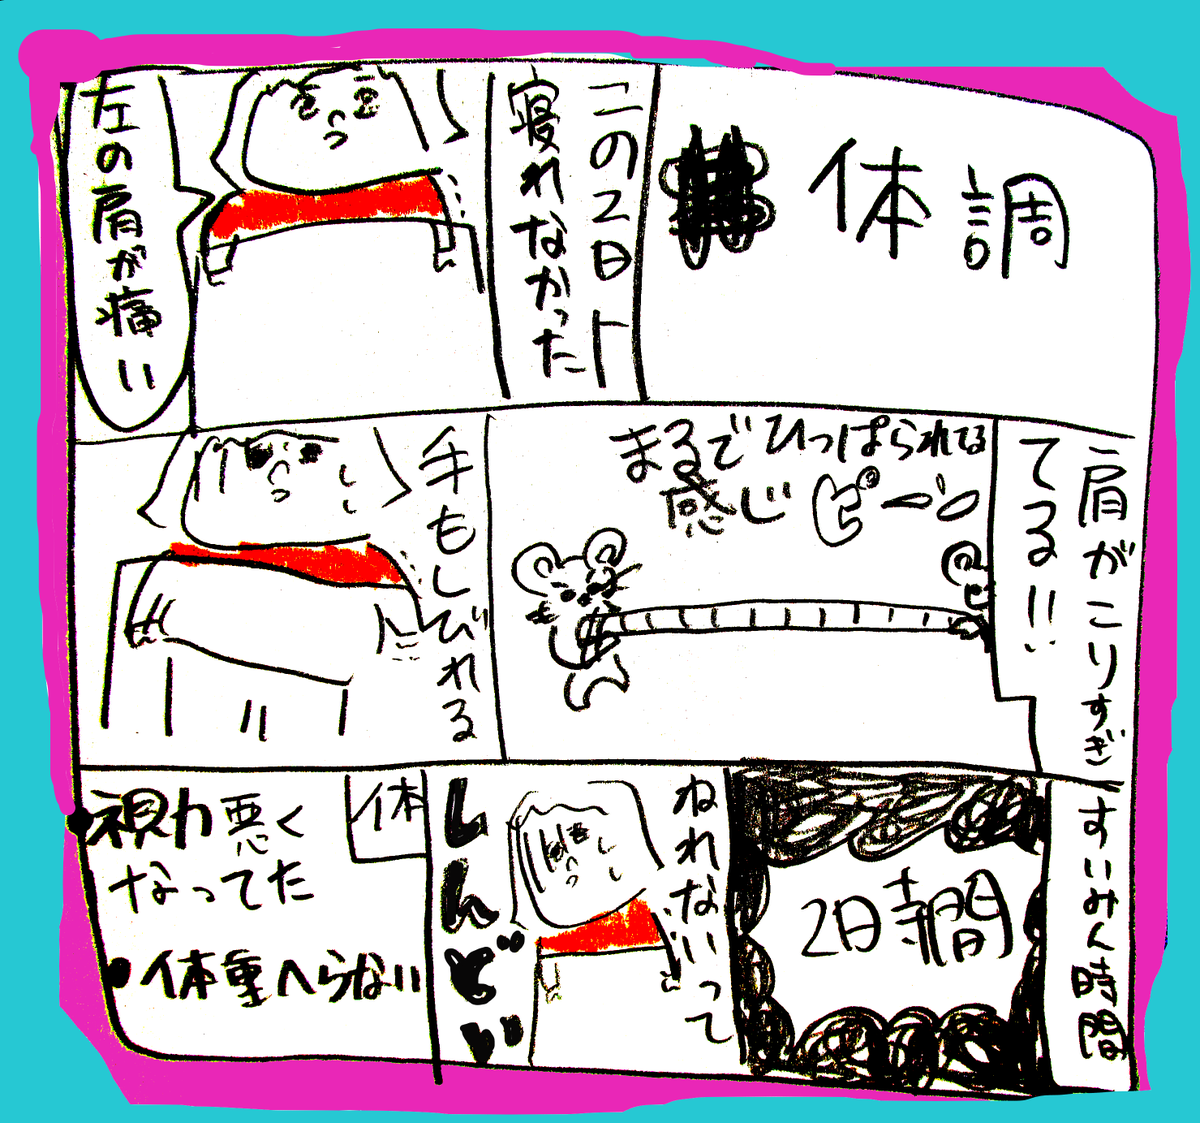 体調
この2日ト
寝れなかった
左の肩が痛い
肩がこりすぎ
てる!!
まるでひっぱられてる
感じ ピーン
手もしびれる
すいみん時間
2時間
ねれないって
しんどい
体
視力悪く
なってた
・体重へらない